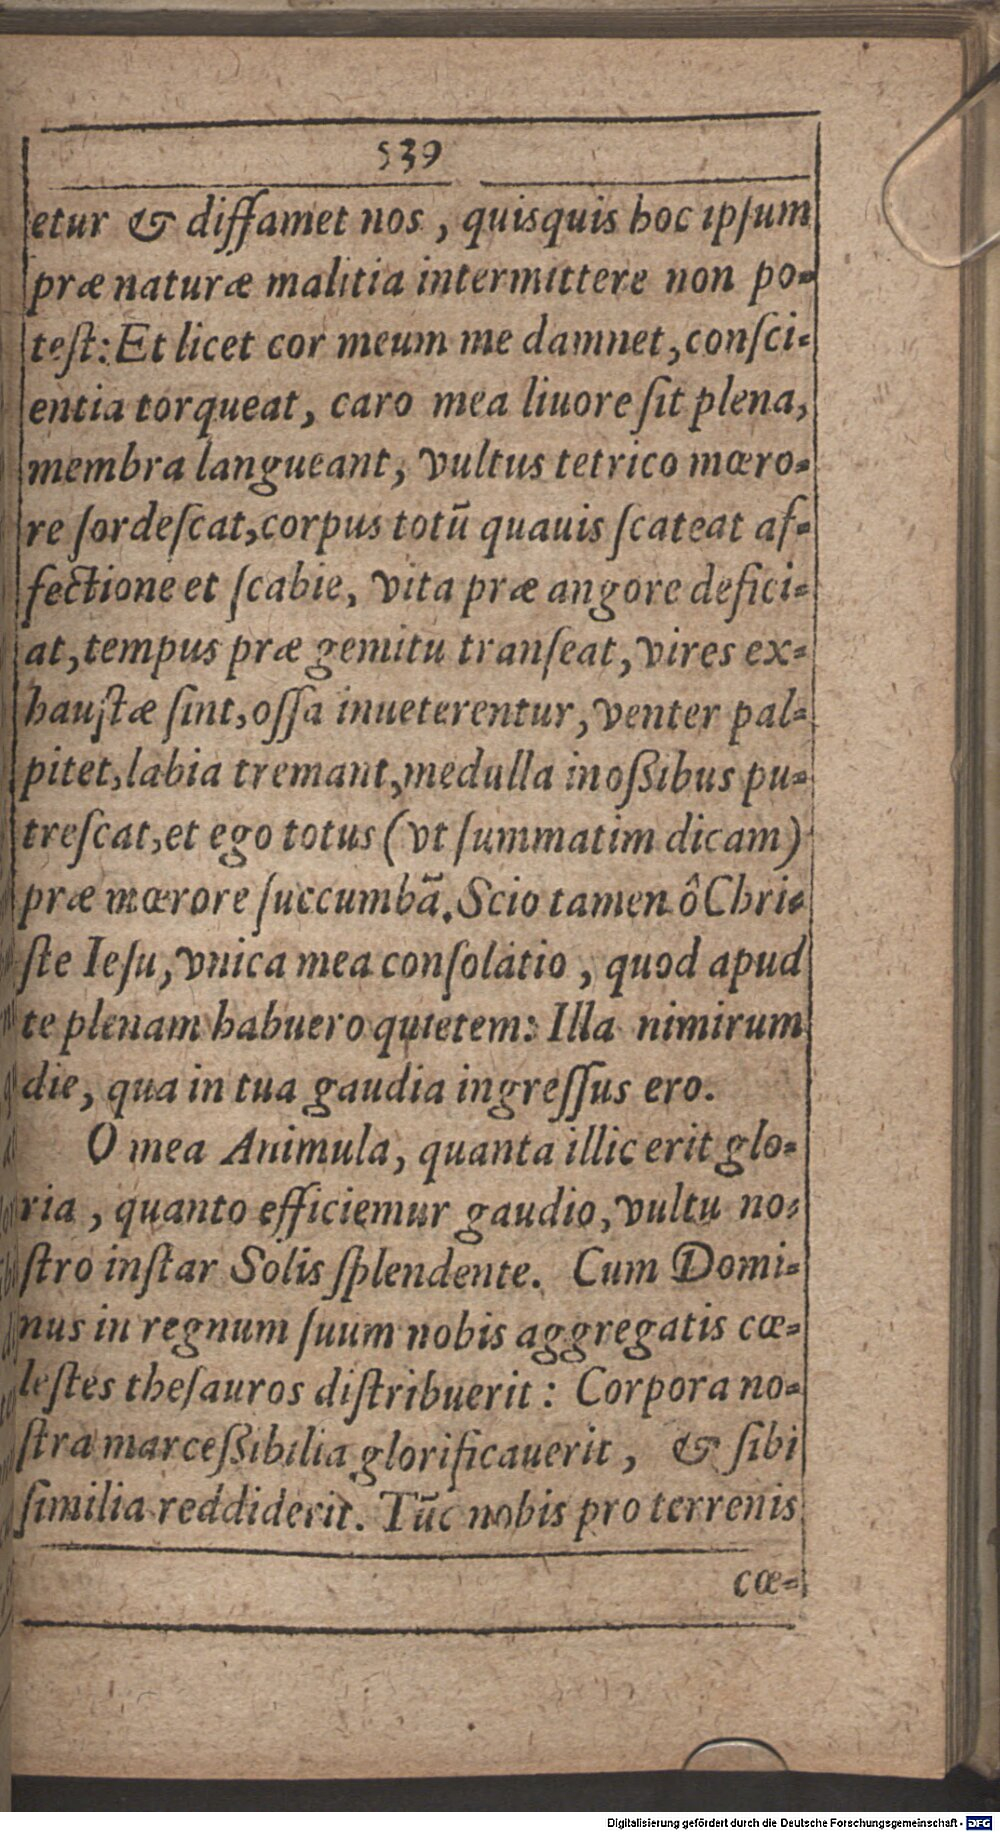 539
etur & diffamet nos, quisquis hoc ipſum
præ naturæ malitia intermittere non po-
teſt: Et licet cor meum me damnet, conſci-
entia torqueat, caro mea liuore ſit plena,
membra langueant, vultus tetrico mœro-
re ſordeſcat, corpus totũ quauis ſcateat af-
fectione et ſcabie, vita præ angore defici-
at, tempus præ gemitu tranſeat, vires ex-
hauſtæ ſint, oſſa inueterentur, venter pal-
pitet, labia tremant, medulla in oßibus pu-
treſcat, et ego totus (vt ſummatim dicam)
præ mœrore ſuccumbã. Scio tamen ô Chri-
ſte Ieſu, vnica mea conſolatio, quod apud
te plenam habuero quietem: Illa nimirum
die, qua in tua gaudia ingreſſus ero.
O mea Animula, quanta illic erit glo-
ria, quanto efficiemur gaudio, vultu no-
ſtro inſtar Solis ſplendente. Cum Domi-
nus in regnum ſuum nobis aggregatis cœ-
leſtes theſauros diſtribuerit: Corpora no-
ſtra marceßibilia glorificauerit, & ſibi
ſimilia reddiderit. Tũc nobis pro terrenis
cœ-
Digitalisierung gefördert durch die Deutsche Forschungsgemeinschaft - DFG